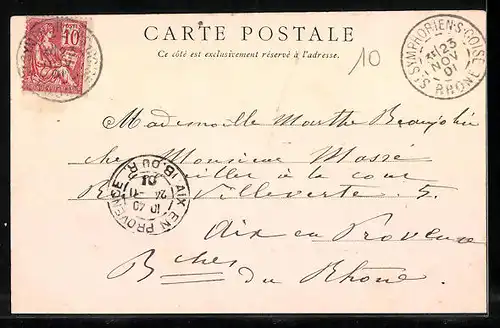 CARTE POSTALE
Ce côté est exclusivement réservé à l'adresse.
10
10
POSTES
ST SYMPHORIEN-S-COISE
23
NOV
01
RHONE
Mademoiselle Marthe Beaujolin
chez Monsieur Massé
Conseiller à la cour
Villeverte 5.
Aix en Provence
Bches du Rhône
AIX EN PROVENCE
B. DU R.
10 40
24 11
01